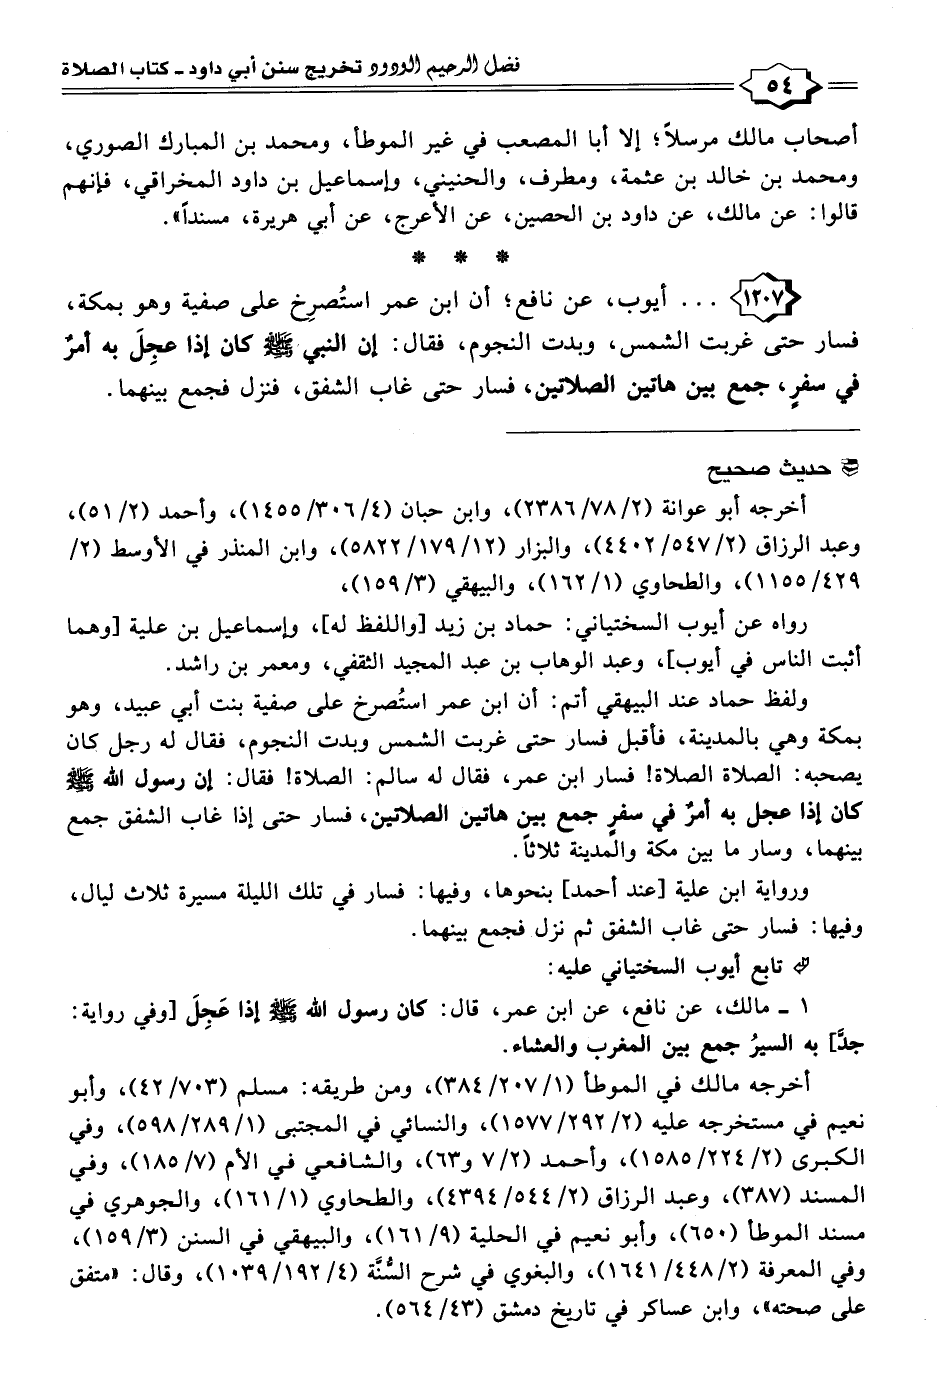 فضل الرحيم الودود تخريج سنن أبي داود ـ كتاب الصلاة
٥٤
أصحاب مالك مرسلاً؛ إلا أبا المصعب في غير الموطأ، ومحمد بن المبارك الصوري،
ومحمد بن خالد بن عثمة، ومطرف، والحنيني، وإسماعيل بن داود المخراقي، فإنهم
قالوا: عن مالك، عن داود بن الحصين، عن الأعرج، عن أبي هريرة، مسنداً».
* * *
١٢٠٧ ... أيوب، عن نافع؛ أن ابن عمر استُصرِخ على صفية وهو بمكة،
فسار حتى غربت الشمس، وبدت النجوم، فقال: إن النبي ﷺ كان إذا عجِلَ به أمرٌ
في سفرٍ، جمع بين هاتين الصلاتين، فسار حتى غاب الشفق، فنزل فجمع بينهما.
حديث صحيح
أخرجه أبو عوانة (٢/٧٨/٢٣٨٦)، وابن حبان (٤/٣٠٦/١٤٥٥)، وأحمد (٢/٥١)،
وعبد الرزاق (٢/٥٤٧/٤٤٠٢)، والبزار (١٢/١٧٩/٥٨٢٢)، وابن المنذر في الأوسط (٢/
٤٢٩/١١٥٥)، والطحاوي (١/١٦٢)، والبيهقي (٣/١٥٩)،
رواه عن أيوب السختياني: حماد بن زيد [واللفظ له]، وإسماعيل بن علية [وهما
أثبت الناس في أيوب]، وعبد الوهاب بن عبد المجيد الثقفي، ومعمر بن راشد.
ولفظ حماد عند البيهقي أتم: أن ابن عمر استُصرخ على صفية بنت أبي عبيد، وهو
بمكة وهي بالمدينة، فأقبل فسار حتى غربت الشمس وبدت النجوم، فقال له رجل كان
يصحبه: الصلاة الصلاة! فسار ابن عمر، فقال له سالم: الصلاة! فقال: إن رسول الله ﷺ
كان إذا عجل به أمرٌ في سفرٍ جمع بين هاتين الصلاتين، فسار حتى إذا غاب الشفق جمع
بينهما، وسار ما بين مكة والمدينة ثلاثاً.
ورواية ابن علية [عند أحمد] بنحوها، وفيها: فسار في تلك الليلة مسيرة ثلاث ليال،
وفيها: فسار حتى غاب الشفق ثم نزل فجمع بينهما.
تابع أيوب السختياني عليه:
١ ـ مالك، عن نافع، عن ابن عمر، قال: كان رسول الله ﷺ إذا عَجِلَ [وفي رواية:
جدَّ] به السيرُ جمع بين المغرب والعشاء.
أخرجه مالك في الموطأ (١/٢٠٧/٣٨٤)، ومن طريقه: مسلم (٧٠٣/٤٢)، وأبو
نعيم في مستخرجه عليه (٢/٢٩٢/١٥٧٧)، والنسائي في المجتبى (١/٢٨٩/٥٩٨)، وفي
الكبرى (٢/٢٢٤/١٥٨٥)، وأحمد (٢/٧ و٦٣)، والشافعي في الأم (٧/١٨٥)، وفي
المسند (٣٨٧)، وعبد الرزاق (٢/٥٤٤/٤٣٩٤)، والطحاوي (١/١٦١)، والجوهري في
مسند الموطأ (٦٥٠)، وأبو نعيم في الحلية (٩/١٦١)، والبيهقي في السنن (٣/١٥٩)،
وفي المعرفة (٢/٤٤٨/١٦٤١)، والبغوي في شرح السُّنَّة (٤/١٩٢/١٠٣٩)، وقال: «متفق
على صحته»، وابن عساكر في تاريخ دمشق (٤٣/٥٦٤).